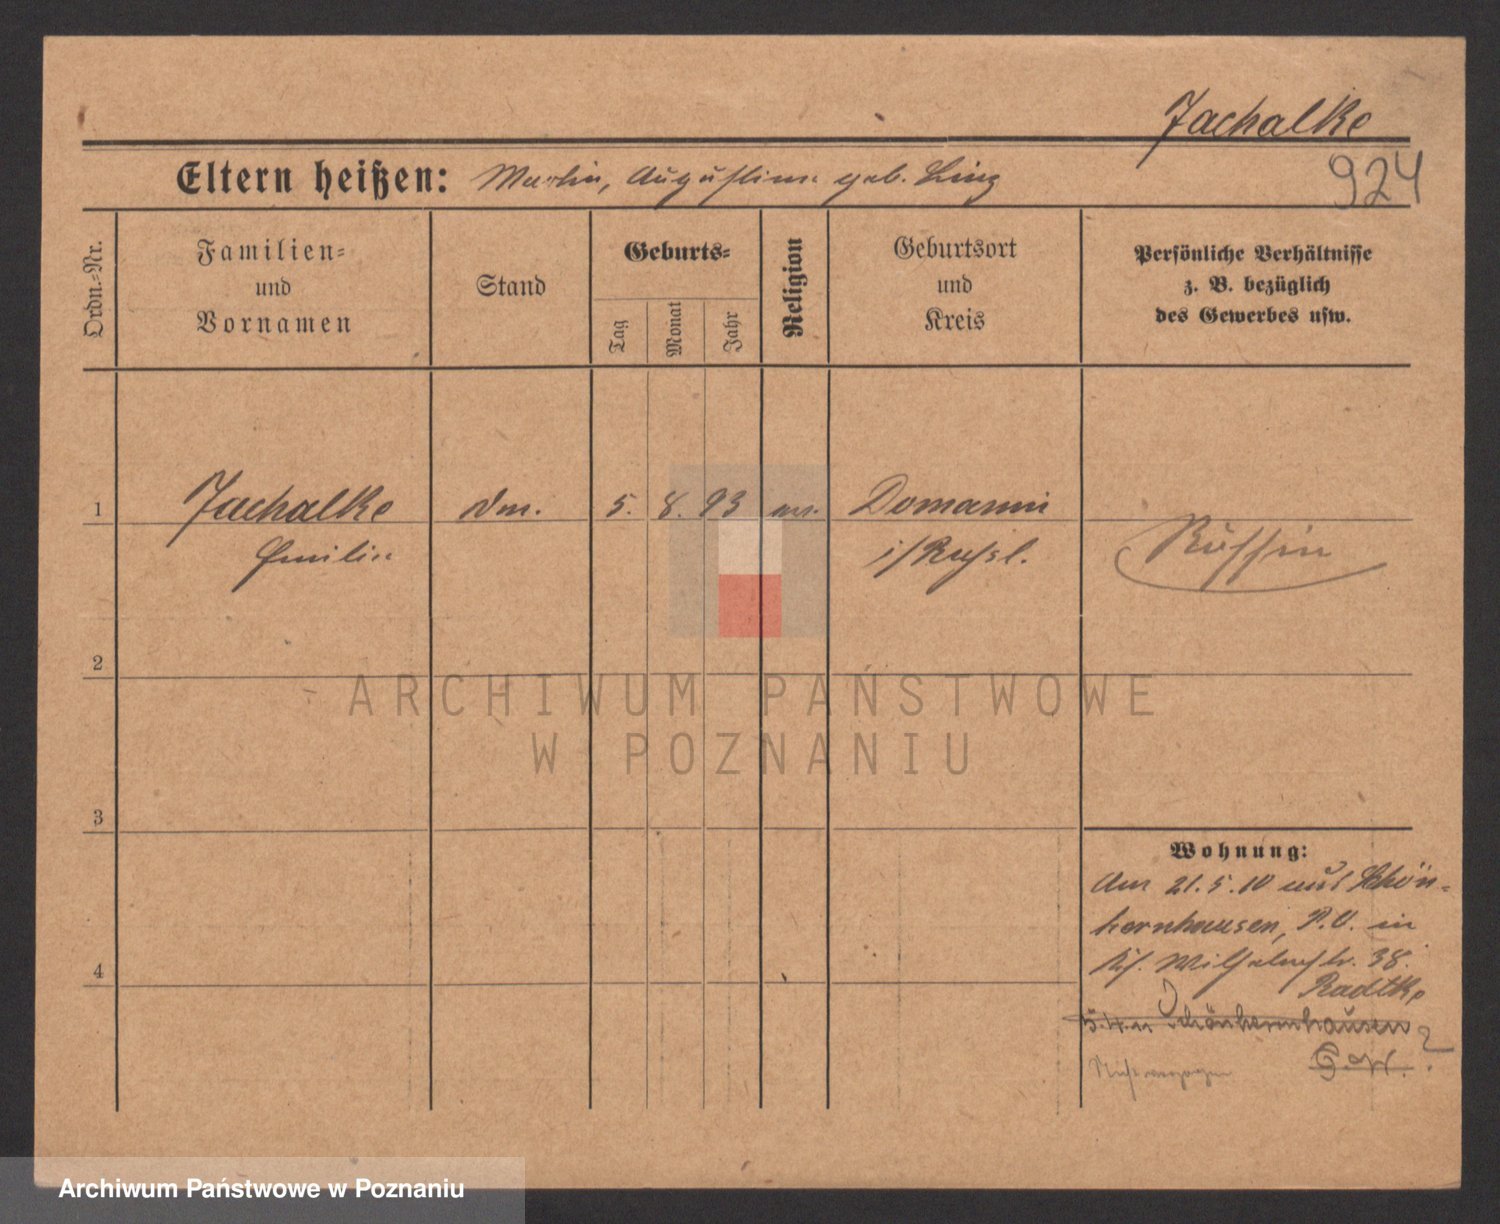 Jachalke
924
Eltern heißen: Martin, Augustine geb. Linz
Ordn.-Nr.
Familien-
und
Vornamen
Stand
Geburts-
Tag
Monat
Jahr
Religion
Geburtsort
und
Kreis
Persönliche Verhältnisse
z. B. bezüglich
des Gewerbes usw.
1
Jachalke
Emilie
Dm.
5. 8. 93
ev.
Domanin
i/Russl.
Russin
2
3
4
Wohnung:
Am 21.5.10 aus Schön-
herrnhausen, P.O. in
Wilhelmstr. 38.
Radtke
Schönherrnhausen
ARCHIWUM PAŃSTWOWE
W POZNANIU
Archiwum Państwowe w Poznaniu